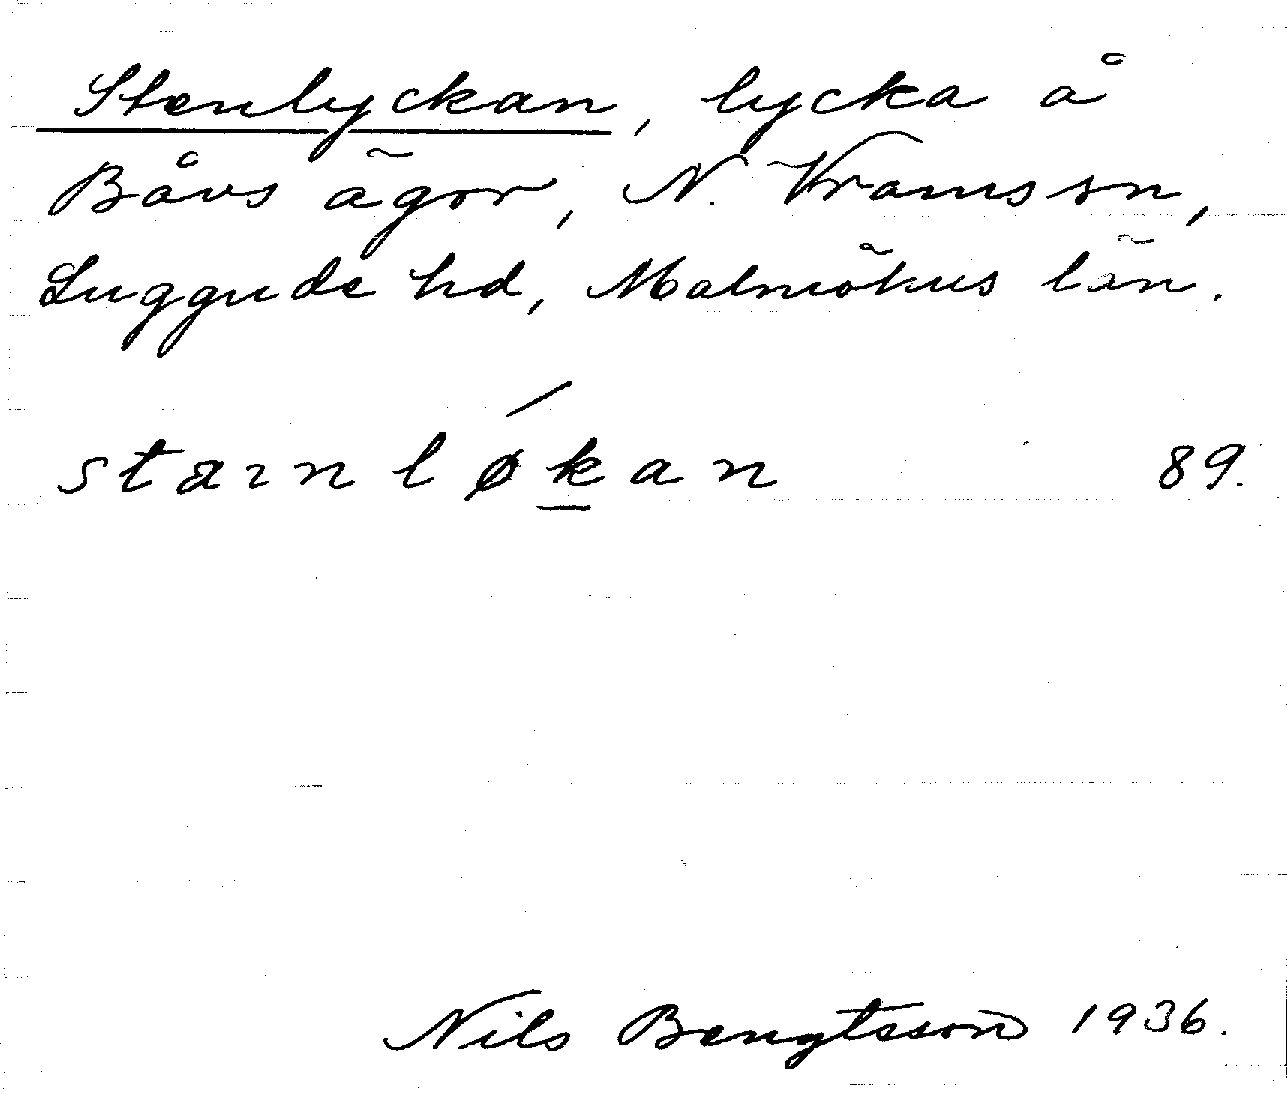 Stenlyckan, lycka å
Båvs ägor, N. Vramssn,
Luggude hd, Malmöhus län.
stæɪnløḱan 89.
Nils Bengtsson 1936.